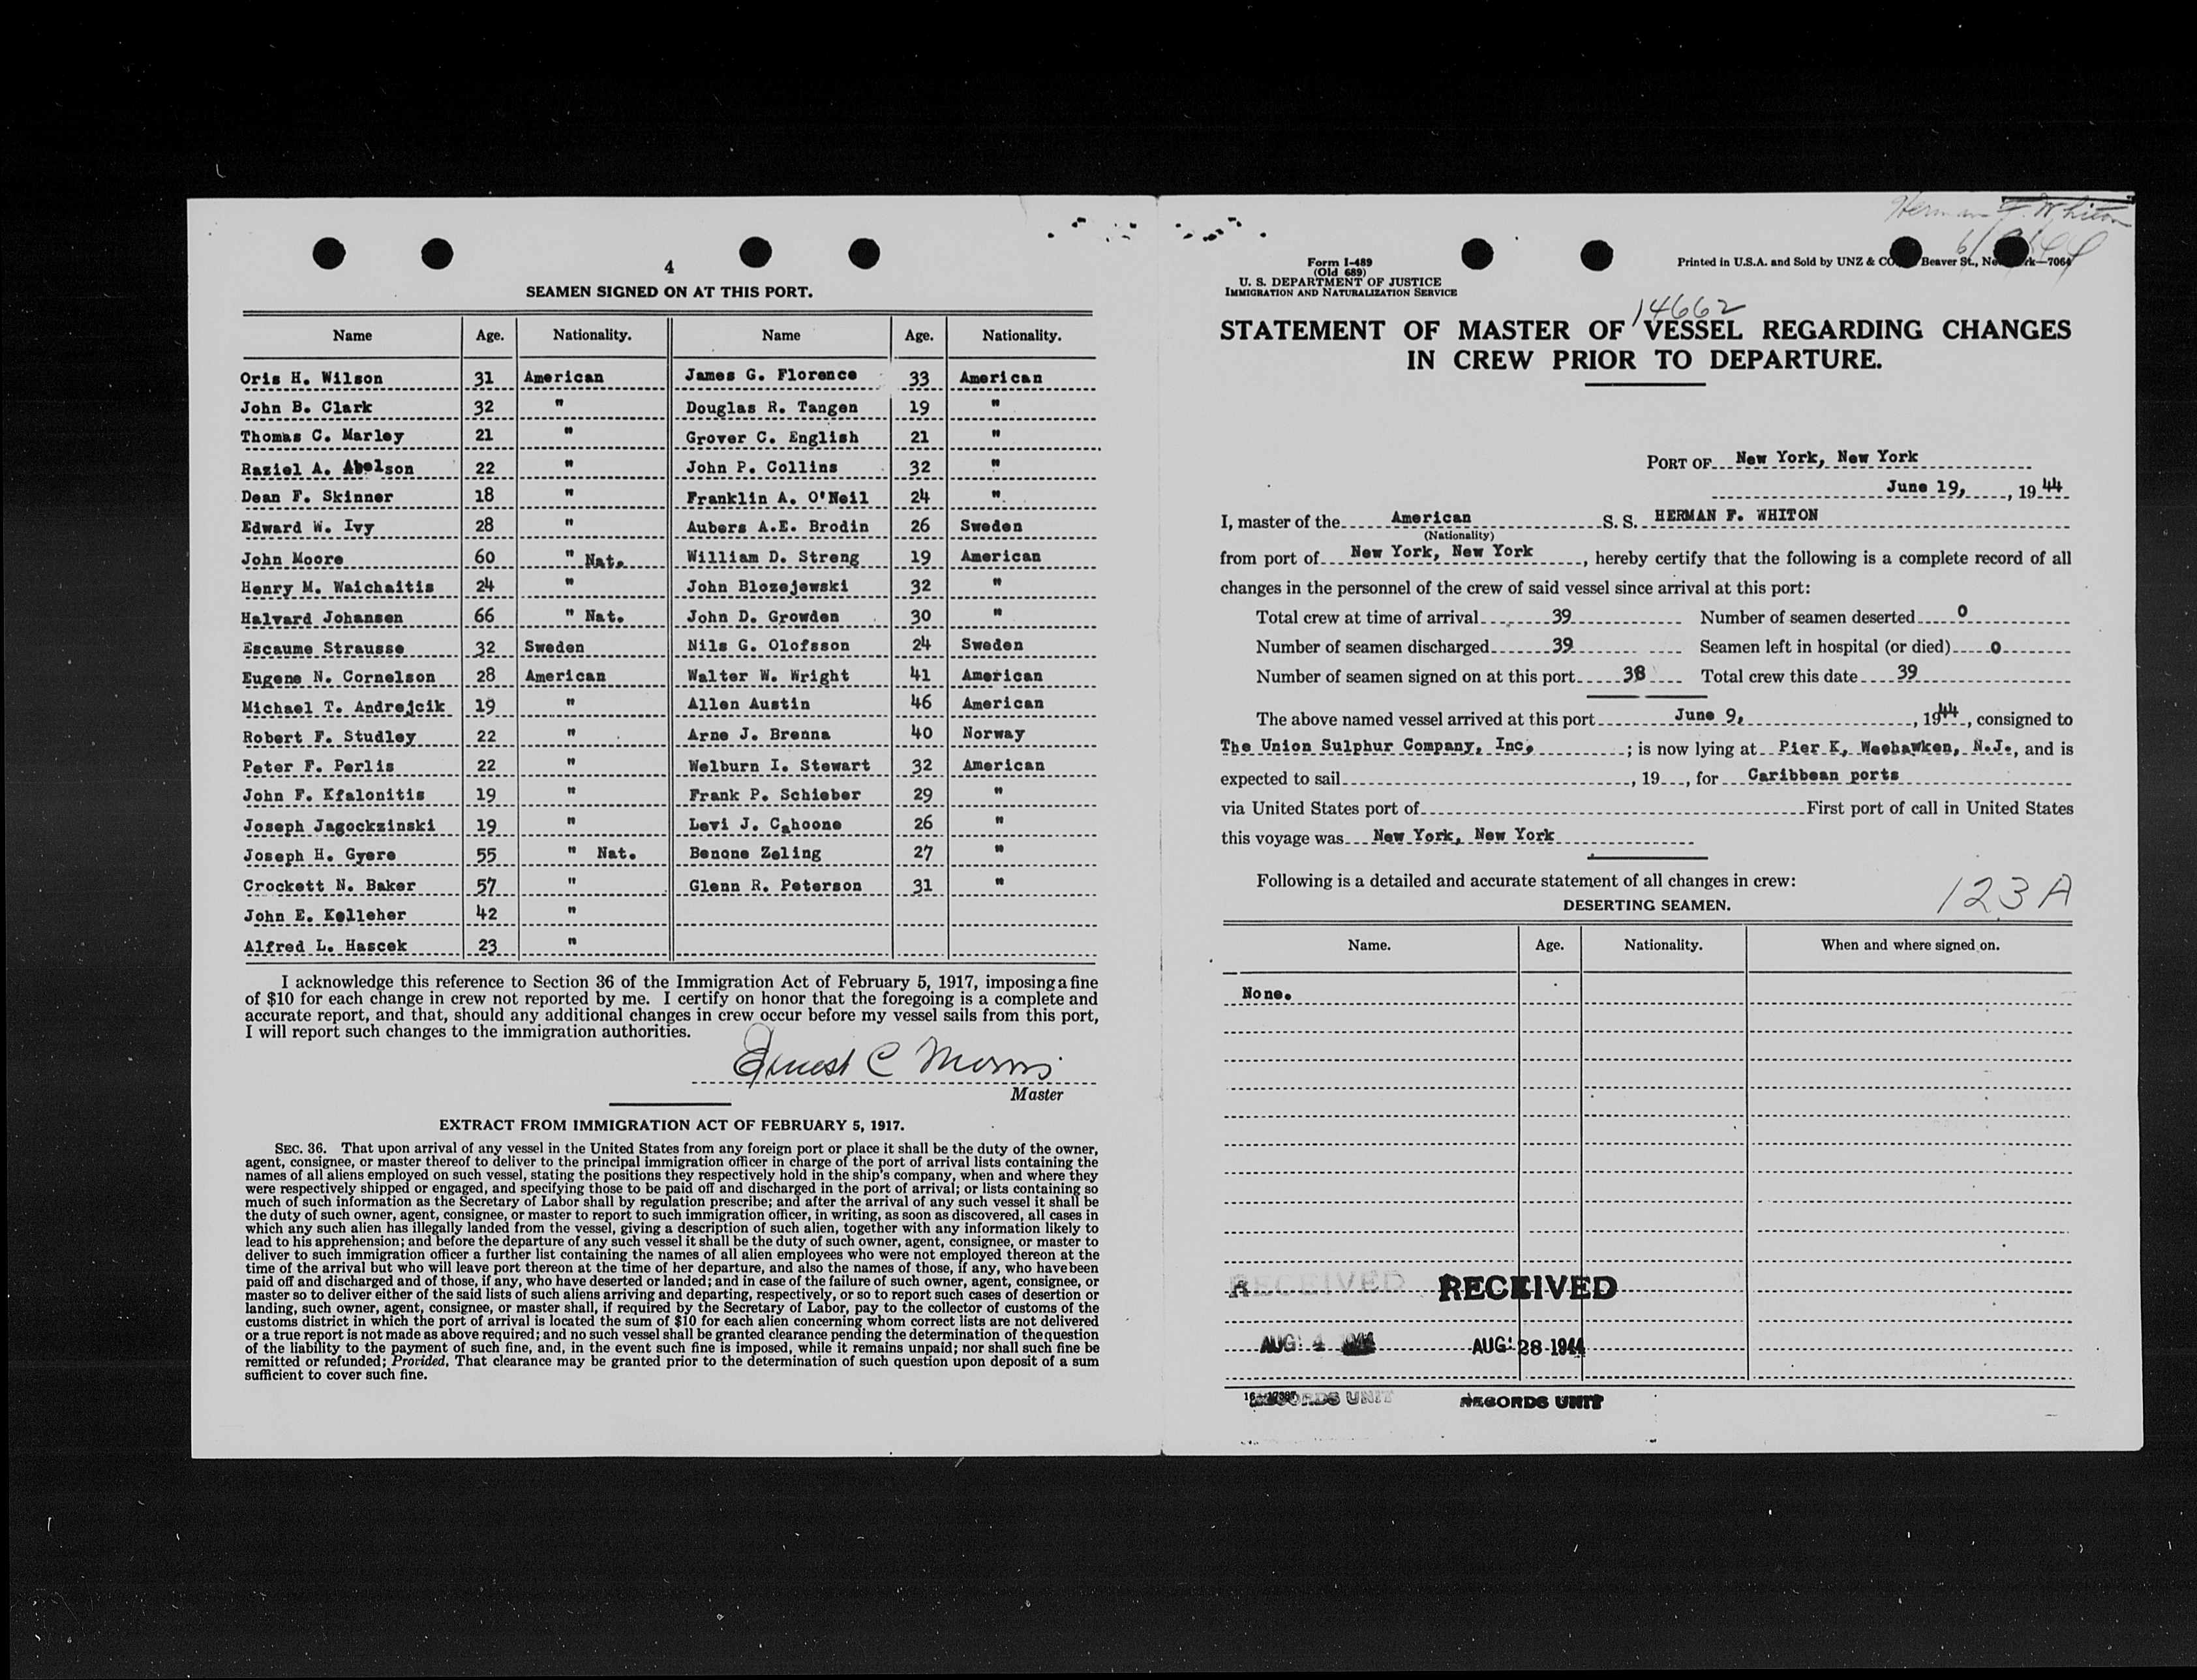 4
SEAMEN SIGNED ON AT THIS PORT.
Name Age. Nationality. Name Age. Nationality.
Oris H. Wilson 31 American James G. Florence 33 American
John B. Clark 32 " Douglas R. Tangen 19 "
Thomas C. Marley 21 " Grover C. English 21 "
Raziel A. Abelson 22 " John P. Collins 32 "
Dean F. Skinner 18 " Franklin A. O'Neil 24 "
Edward W. Ivy 28 " Aubers A.E. Brodin 26 Sweden
John Moore 60 " Nat. William D. Streng 19 American
Henry M. Waichaitis 24 " John Blozejewski 32 "
Halvard Johansen 66 " Nat. John D. Growden 30 "
Escaume Strausse 32 Sweden Nils G. Olofsson 24 Sweden
Eugene N. Cornelson 28 American Walter W. Wright 41 American
Michael T. Andrejcik 19 " Allen Austin 46 American
Robert F. Studley 22 " Arne J. Brenna 40 Norway
Peter F. Perlis 22 " Welburn I. Stewart 32 American
John F. Kfalonitis 19 " Frank P. Schieber 29 "
Joseph Jagockzinski 19 " Levi J. Cahoone 26 "
Joseph H. Gyere 55 " Nat. Benone Zeling 27 "
Crockett N. Baker 57 " Glenn R. Peterson 31 "
John E. Kelleher 42 "
Alfred L. Hascek 23 "
I acknowledge this reference to Section 36 of the Immigration Act of February 5, 1917, imposing a fine
of $10 for each change in crew not reported by me. I certify on honor that the foregoing is a complete and
accurate report, and that, should any additional changes in crew occur before my vessel sails from this port,
I will report such changes to the immigration authorities.
Ernest C Morris
Master
EXTRACT FROM IMMIGRATION ACT OF FEBRUARY 5, 1917.
SEC. 36. That upon arrival of any vessel in the United States from any foreign port or place it shall be the duty of the owner,
agent, consignee, or master thereof to deliver to the principal immigration officer in charge of the port of arrival lists containing the
names of all aliens employed on such vessel, stating the positions they respectively hold in the ship's company, when and where they
were respectively shipped or engaged, and specifying those to be paid off and discharged in the port of arrival; or lists containing so
much of such information as the Secretary of Labor shall by regulation prescribe; and after the arrival of any such vessel it shall be
the duty of such owner, agent, consignee, or master to report to such immigration officer, in writing, as soon as discovered, all cases in
which any such alien has illegally landed from the vessel, giving a description of such alien, together with any information likely to
lead to his apprehension; and before the departure of any such vessel it shall be the duty of such owner, agent, consignee, or master to
deliver to such immigration officer a further list containing the names of all alien employees who were not employed thereon at the
time of the arrival but who will leave port thereon at the time of her departure, and also the names of those, if any, who have been
paid off and discharged and of those, if any, who have deserted or landed; and in case of the failure of such owner, agent, consignee, or
master so to deliver either of the said lists of such aliens arriving and departing, respectively, or so to report such cases of desertion or
landing, such owner, agent, consignee, or master shall, if required by the Secretary of Labor, pay to the collector of customs of the
customs district in which the port of arrival is located the sum of $10 for each alien concerning whom correct lists are not delivered
or a true report is not made as above required; and no such vessel shall be granted clearance pending the determination of the question
of the liability to the payment of such fine, and, in the event such fine is imposed, while it remains unpaid; nor shall such fine be
remitted or refunded; Provided, That clearance may be granted prior to the determination of such question upon deposit of a sum
sufficient to cover such fine.
Herman F. Whiton
Form I-489
(Old 689)
U. S. DEPARTMENT OF JUSTICE
IMMIGRATION AND NATURALIZATION SERVICE
Printed in U.S.A. and Sold by UNZ & CO Beaver St., —7064
14662
STATEMENT OF MASTER OF VESSEL REGARDING CHANGES
IN CREW PRIOR TO DEPARTURE.
PORT OF New York, New York
June 19, , 19 44
I, master of the American S. S. HERMAN F. WHITON
(Nationality)
from port of New York, New York , hereby certify that the following is a complete record of all
changes in the personnel of the crew of said vessel since arrival at this port:
Total crew at time of arrival 39 Number of seamen deserted 0
Number of seamen discharged 39 Seamen left in hospital (or died) 0
Number of seamen signed on at this port 38 Total crew this date 39
The above named vessel arrived at this port June 9, , 1944, consigned to
The Union Sulphur Company, Inc. ; is now lying at Pier K, Weehawken, N.J., and is
expected to sail , 19 , for Caribbean ports
via United States port of First port of call in United States
this voyage was New York, New York
Following is a detailed and accurate statement of all changes in crew:
123A
DESERTING SEAMEN.
Name. Age. Nationality. When and where signed on.
None.
RECEIVED RECEIVED
AUG 4 1944 AUG 28 1944
RECORDS UNIT RECORDS UNIT